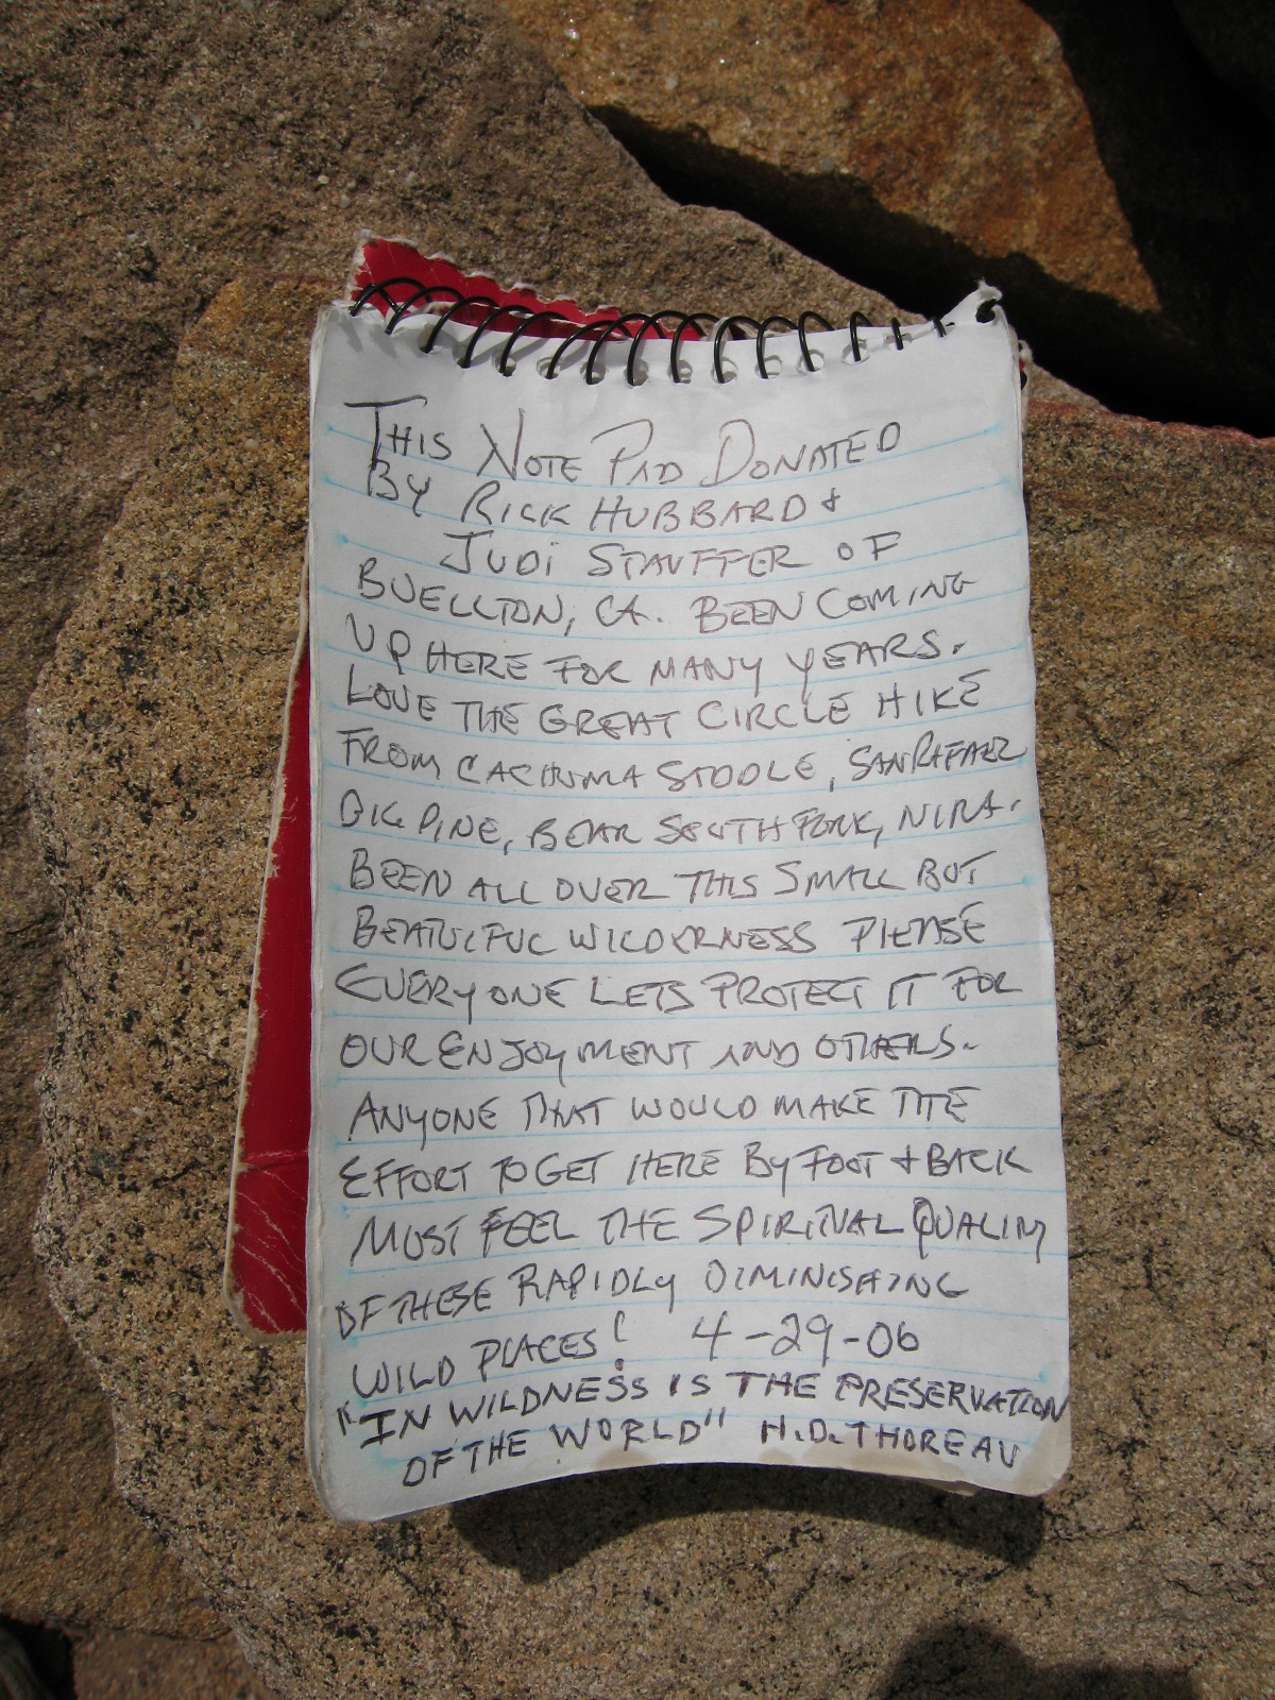 THIS NOTE PAD DONATED
BY RICK HUBBARD &
JUDI STAUFFER OF
BUELLTON, CA. BEEN COMING
UP HERE FOR MANY YEARS.
LOVE THE GREAT CIRCLE HIKE
FROM CACHUMA SADDLE, SAN RAFAEL
BIG PINE, BEAR SOUTH FORK, NIRA.
BEEN ALL OVER THIS SMALL BUT
BEATUIFUL WILDERNESS PLEASE
EVERYONE LETS PROTECT IT FOR
OUR ENJOYMENT AND OTHERS.
ANYONE THAT WOULD MAKE THE
EFFORT TO GET HERE BY FOOT & BACK
MUST FEEL THE SPIRITUAL QUALITY
OF THESE RAPIDLY DIMINISHING
WILD PLACES! 4-29-06
"IN WILDNESS IS THE PRESERVATION
OF THE WORLD" H.D. THOREAU